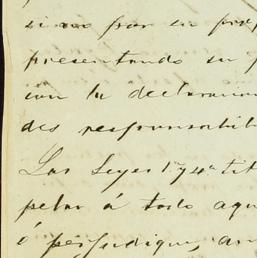 sino por su prop
presentando su p
con la declaracion
des responsabili
Las Leyes 1ª y 4ª tit
pelar á todo aqu
ó perjudique, au